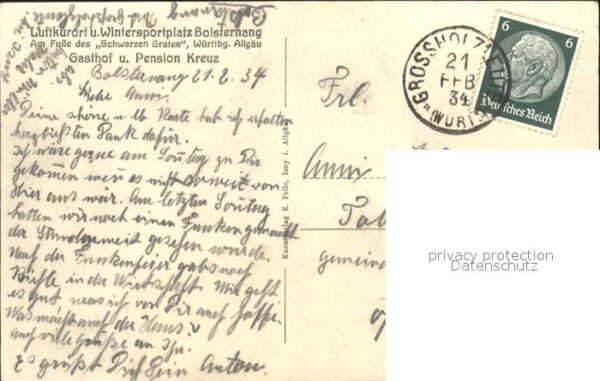 Luftkurort u. Wintersportplatz Bolsternang
Am Fuße des „Schwarzen Grates", Württbg. Allgäu
Gasthof u. Pension Kreuz
Bolsternang 21.2.34
Liebe Anni.
Deine schöne u. lb. Karte hab ich erhalten
herzlichsten Dank dafür.
Ich wäre gerne am Sontag zu Dir
gekommen wen es nicht so weit von
Hier aus wär. Am letzten Sontag
hatten wir noch einen Funken gemacht
der Stundenweit gesehen wurde.
Nach der Funkenfeier gabs noch
in der Wirtschaft. Mir geht
es gut was ich von Dir auch hoffe.
Was macht auch der Hans?
auch viele Grüße an Ihn.
Es grüßt Dich Dein Anton.
Bolsternang
Kunstverlag E. Felle, Isny i. Allgäu
Frl.
Anni
gemein
GROSSHOLZLEUTE
21
FEB
34
(WÜRTT)
6 6
Deutsches Reich
privacy protection
Datenschutz